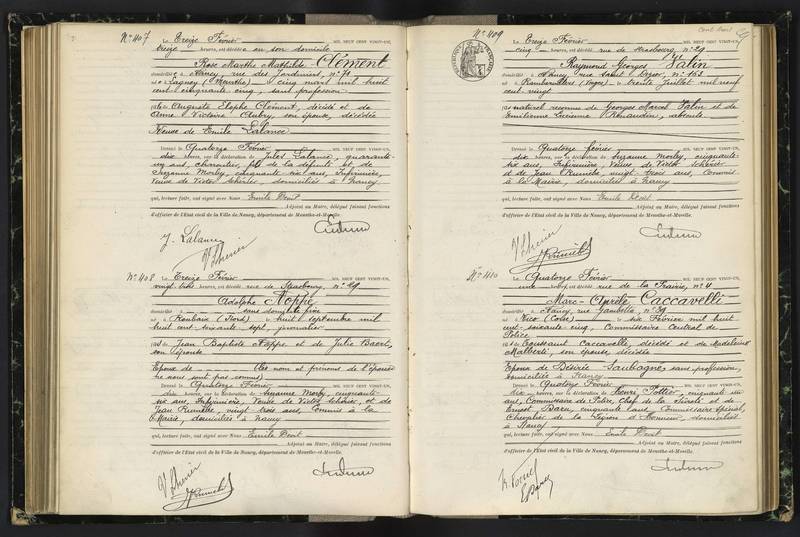 N° 407 Le Treize Février MIL NEUF CENT VINGT-UN,
treize heures, est décédée en son domicile
Rose Marthe Mathilde Clément
domiciliée à Nancy, rue des Jardiniers, n° 71
née à Lagney (Meurthe) le cinq mars mil huit
cent cinquante cinq, sans profession
fille de Auguste Elophe Clément, décédé et de
Anne Victoire Aubry, son épouse, décédée
Veuve de Emile Lalance
Dressé le Quatorze Février
dix heures, sur la déclaration de Jules Lalance, quarante-
un ans, charretier, fils de la défunte et de
Suzanne Morley, cinquante-six ans, Infirmière,
Veuve de Victor Schérier, domiciliés à Nancy
qui, lecture faite, ont signé avec Nous Emile Dent
Adjoint au Maire, délégué faisant fonctions
d'officier de l'État civil de la Ville de Nancy, département de Meurthe-et-Moselle.
J. Lalance
N° 408 Le Treize Février MIL NEUF CENT VINGT-UN,
heures, est décédé rue de Strasbourg, n° 29
Adolphe Noppe
domicilié sans domicile fixe
né à Roubaix (Nord) le huit septembre mil
huit cent soixante sept, journalier
fils de Jean Baptiste Noppe et de Julie
son épouse
Epoux de (les nom et prénoms de l'épouse
ne nous sont pas connus)
Dressé le Quatorze Février
dix heures, sur la déclaration de Suzanne Morley, cinquante-
six ans, Infirmière, Veuve de Victor Schérier, et de
Jean vingt trois ans, Commis à la
Mairie, domiciliés à Nancy
qui, lecture faite, ont signé avec Nous Emile Dent
Adjoint au Maire, délégué faisant fonctions
d'officier de l'État civil de la Ville de Nancy, département de Meurthe-et-Moselle.
N° 409 Le Treize Février MIL NEUF CENT VINGT-UN,
cinq heures, est décédé rue de Strasbourg, n° 29
Raymond Georges Valin
domicilié à Nancy, rue n° 163
né à Rambervillers (Vosges) le trente Juillet mil neuf
cent vingt
fils naturel reconnu de Georges Marcel Valin et de
Emilienne Lucienne Renaudin, absente
Dressé le Quatorze février,
dix heures, sur la déclaration de Suzanne Morley, cinquante-
six ans, Infirmière, Veuve de Victor Schérier
et de Jean vingt trois ans, Commis
à la Mairie, domiciliés à Nancy
qui, lecture faite, ont signé avec Nous Emile Dent
Adjoint au Maire, délégué faisant fonctions
d'officier de l'État civil de la Ville de Nancy, département de Meurthe-et-Moselle.
N° 410 Le Quatorze Février MIL NEUF CENT VINGT-UN,
une heures, est décédé rue de la Prairie, n° 4
Marc-Cyrile Caccavelli
domicilié à Nancy, rue Gambetta, n° 39
né à Vico (Corse) le six Février mil huit
cent-soixante cinq, Commissaire Central de
Police
fils de Toussaint Caccavelli, décédé et de Madeleine
Malberti, son épouse, décédée
Epoux de Désirée Saubagné, sans profession,
domiciliée à Nancy
Dressé le Quatorze Février
dix heures, sur la déclaration de Henri cinquante
ans, Commissaire de Police, Chef de la Sûreté et de
Ernest cinquante ans, Commissaire spécial,
Chevalier de la Légion d'Honneur, domiciliés
à Nancy
qui, lecture faite, ont signé avec Nous Emile Dent
Adjoint au Maire, délégué faisant fonctions
d'officier de l'État civil de la Ville de Nancy, département de Meurthe-et-Moselle.